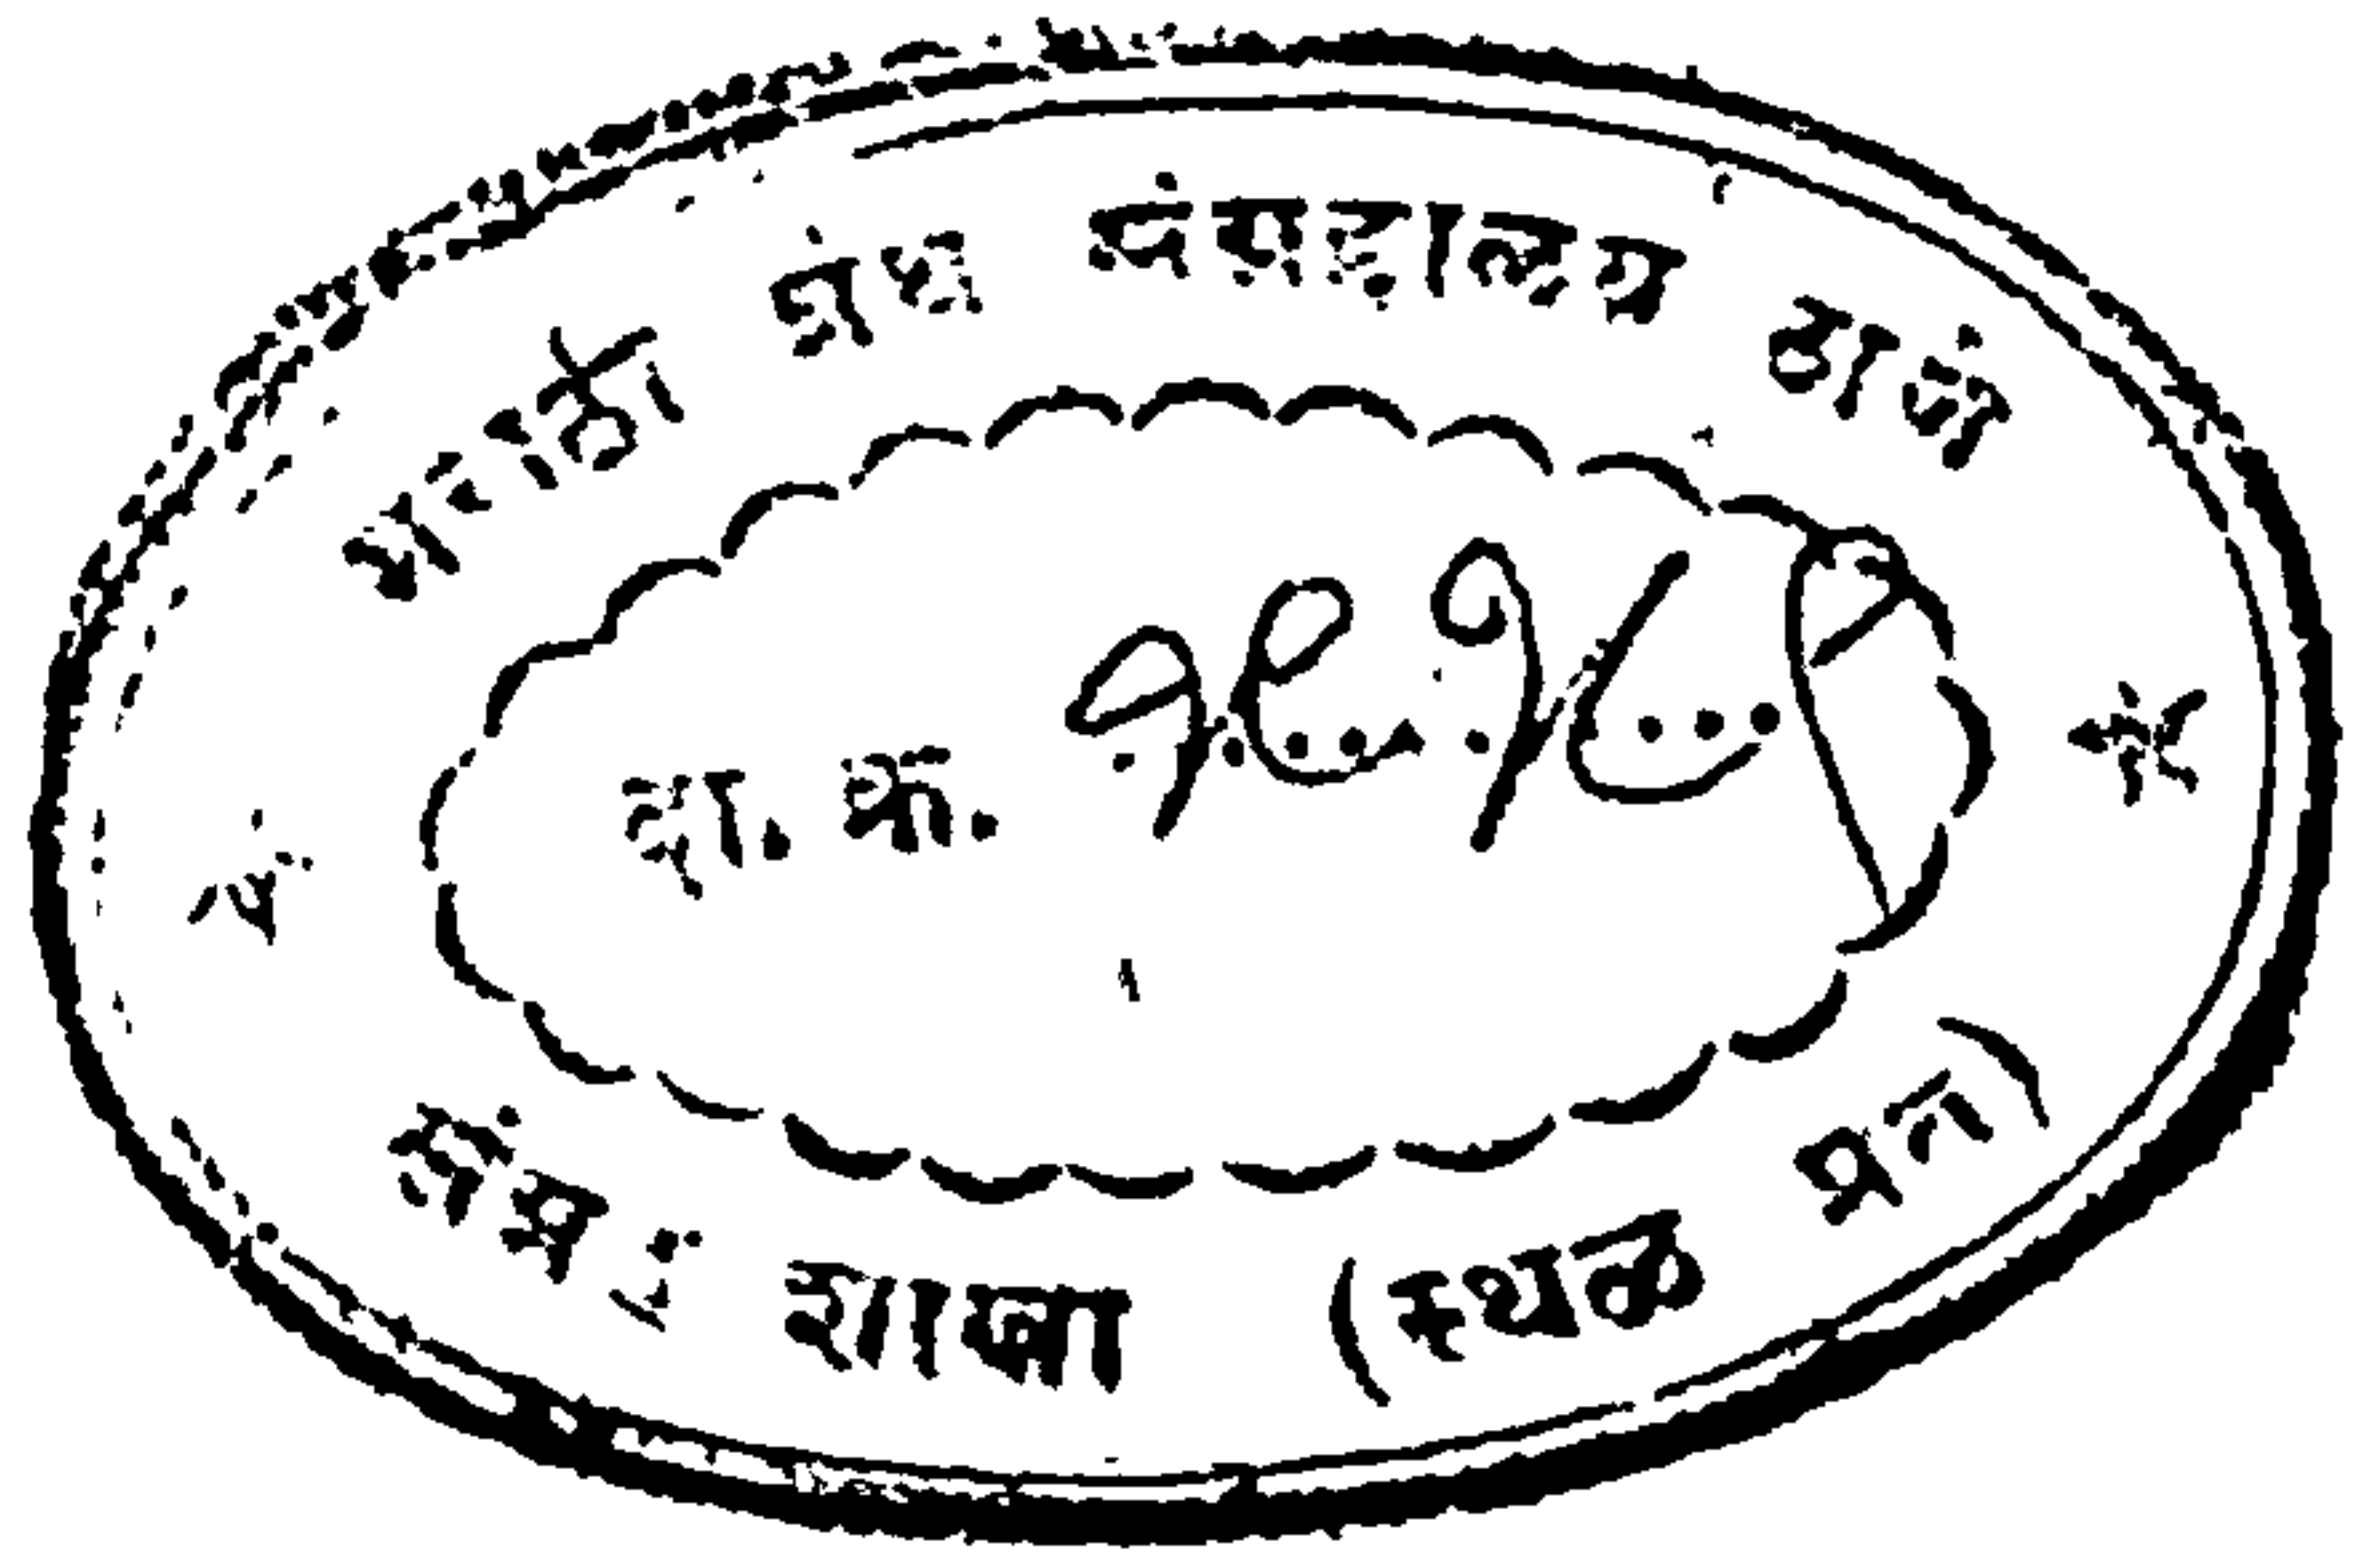 मराठी ग्रंथ संग्रहालय ठाणें
दा. क्रं.
संदर्भ शाखा (स्थळ प्रत)